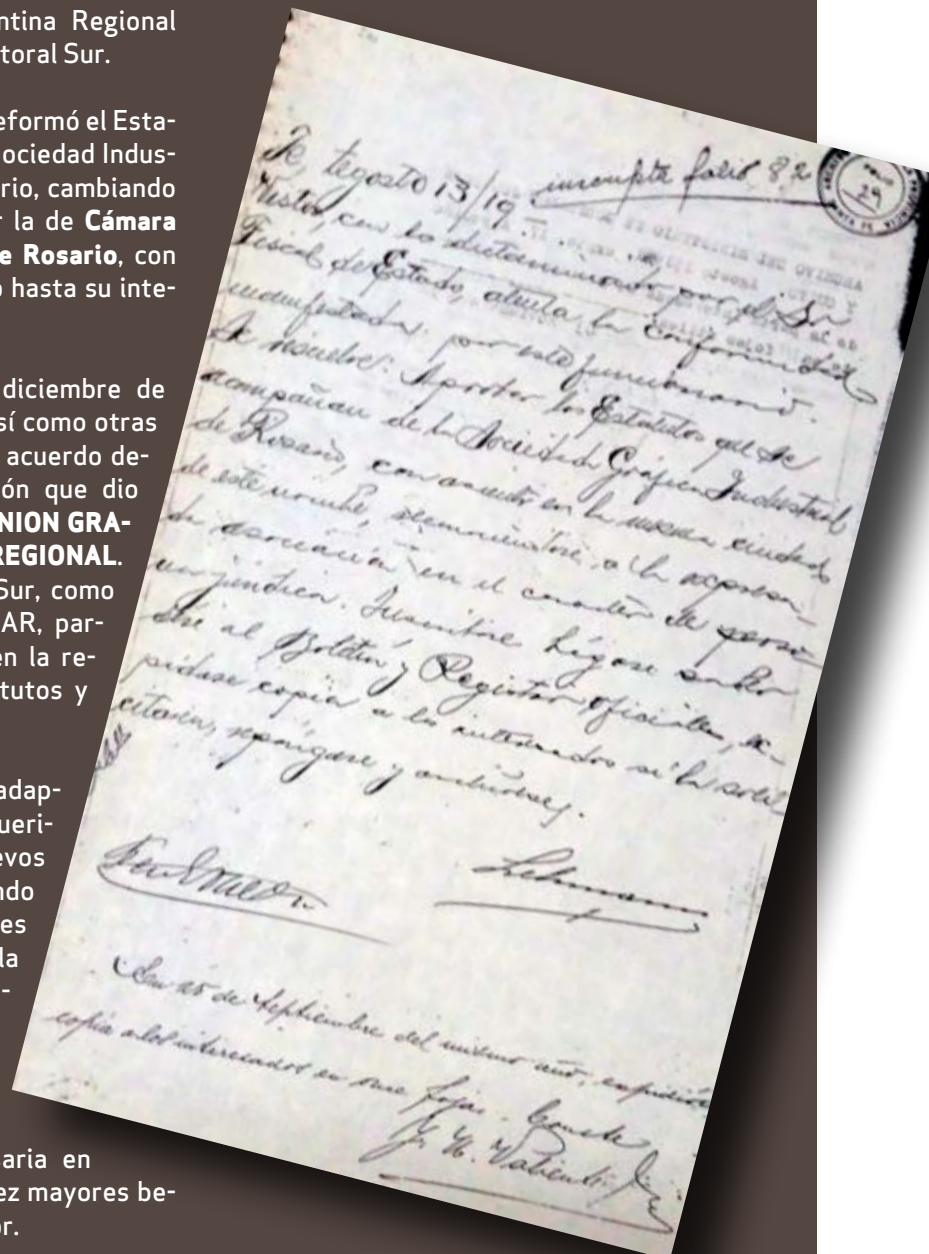 ntina Regional
toral Sur.
eformó el Esta-
ociedad Indus-
rio, cambiando
r la de Cámara
e Rosario, con
o hasta su inte-
diciembre de
sí como otras
acuerdo de-
ón que dio
NION GRA-
REGIONAL.
Sur, como
AR, par-
en la re-
tutos y
adap-
ueri-
evos
ndo
es
la
-
saria en
ez mayores be-
or.
Fe, Agosto 13/19. inscripta folio 82
29
Vistos, con lo dictaminado por el Sr
Fiscal de Estado, atenta la conformidad
manifestada por este funcionario.
Se resuelve: Aprobar los Estatutos que se
acompañan de la Sociedad Gráfica Industrial
de Rosario, con asiento en la misma ciudad
de este nombre, reconociéndose a la expresa-
da asociación en el carácter de perso-
na jurídica. Insértese hágase saber
al Boletín y Registro Oficiales, ex-
pídase copia a los interesados si la solici-
citaren, repóngase y archívese.
Lehmann
En 25 de Septiembre del mismo año, expedí
copia a los interesados en once fojas. Conste